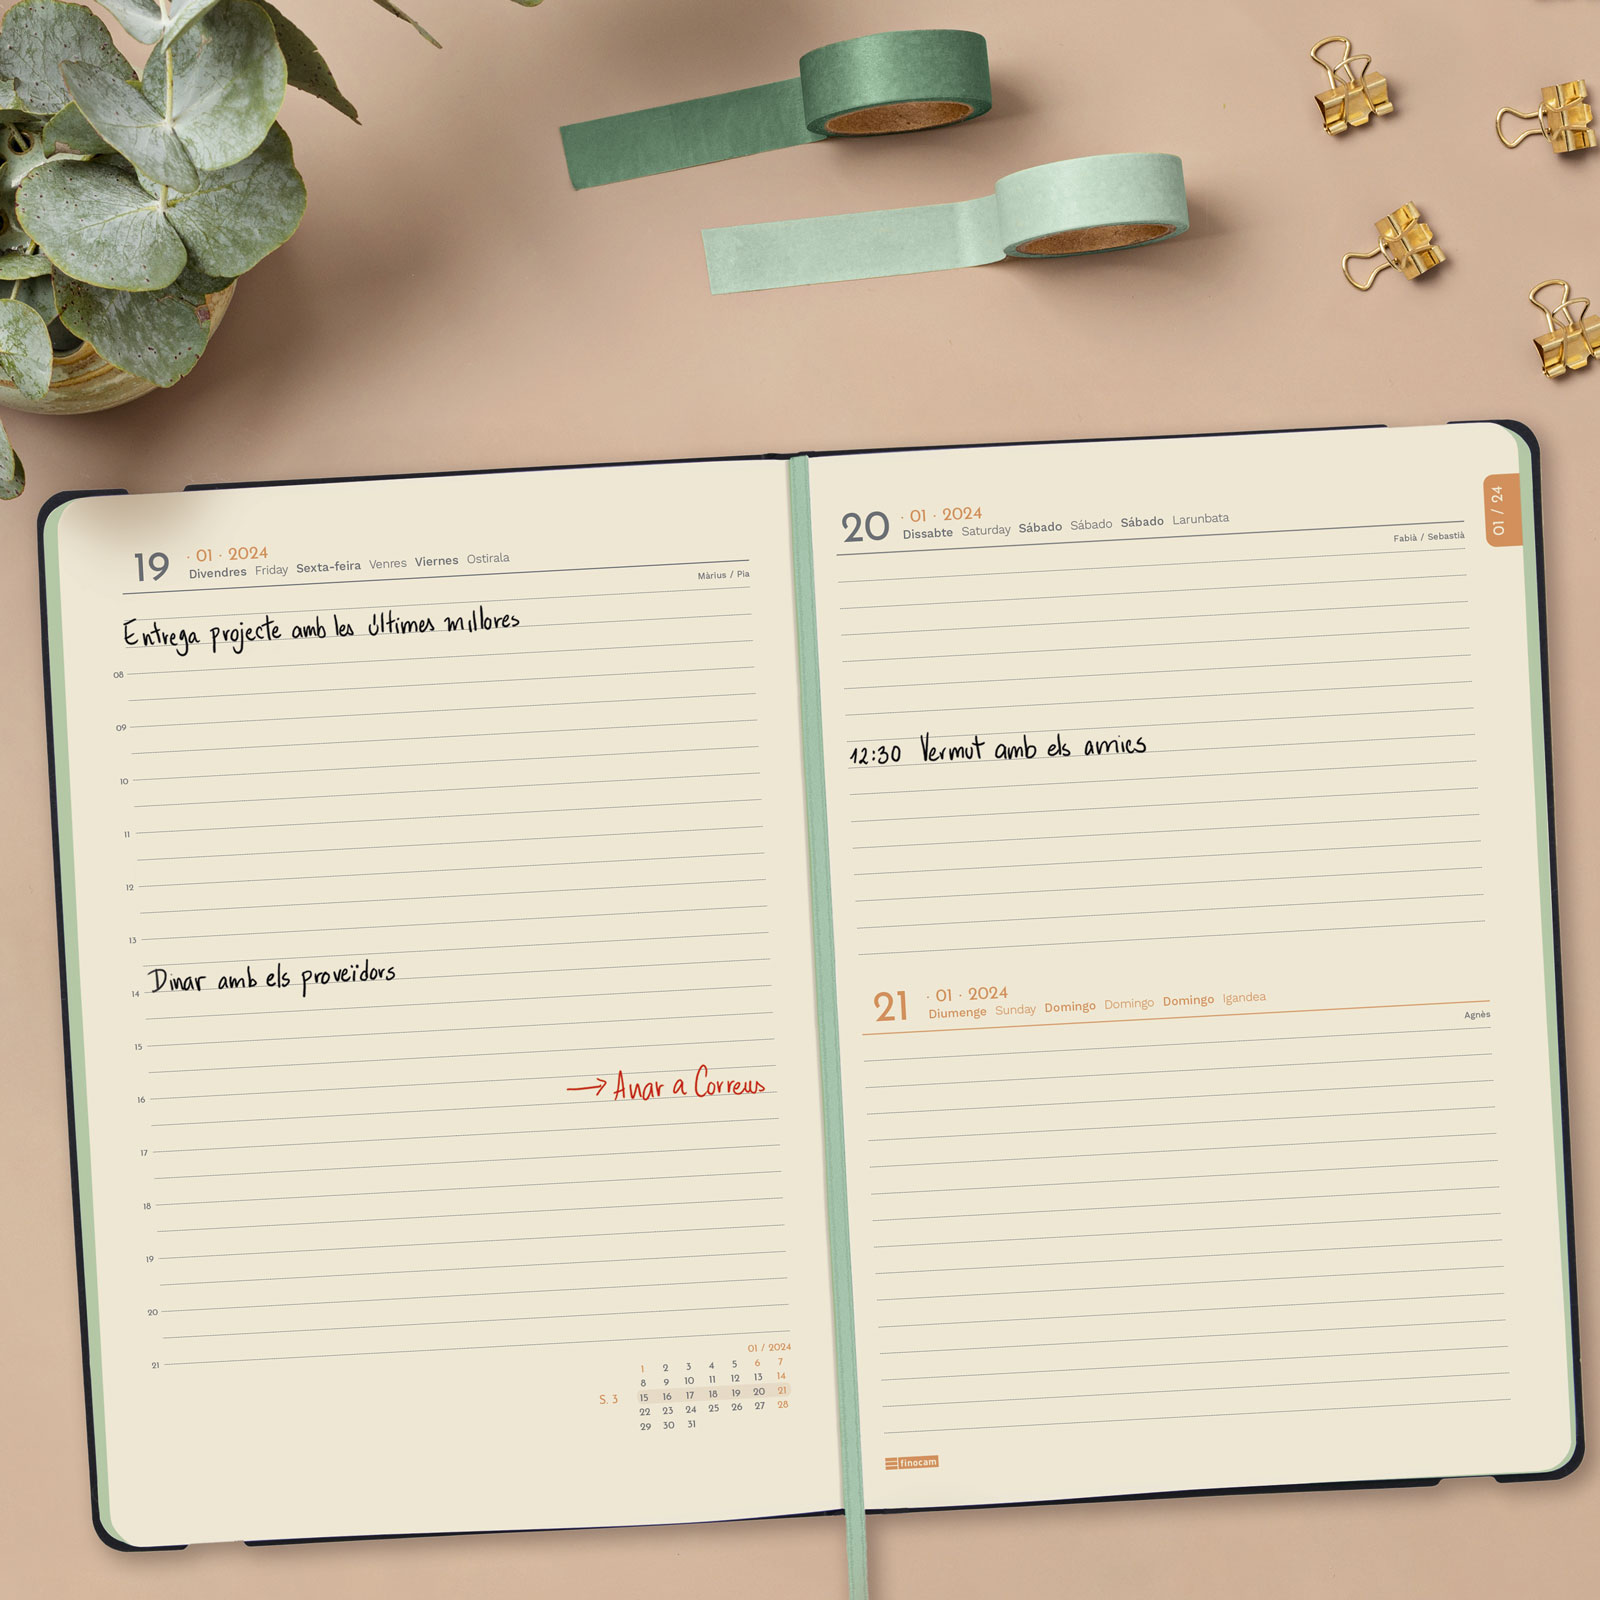 19 · 01 · 2024
Divendres Friday Sexta-feira Venres Viernes Ostirala
Màrius / Pia
Entrega projecte amb les últimes millores
08
09
10
11
12
13
14 Dinar amb els proveïdors
15
16 → Anar a Correus
17
18
19
20
21
01 / 2024
1 2 3 4 5 6 7
8 9 10 11 12 13 14
S. 3 15 16 17 18 19 20 21
22 23 24 25 26 27 28
29 30 31
20 · 01 · 2024
Dissabte Saturday Sábado Sábado Sábado Larunbata
Fabià / Sebastià
01 / 24
12:30 Vermut amb els amics
21 · 01 · 2024
Diumenge Sunday Domingo Domingo Domingo Igandea
Agnès
finocam